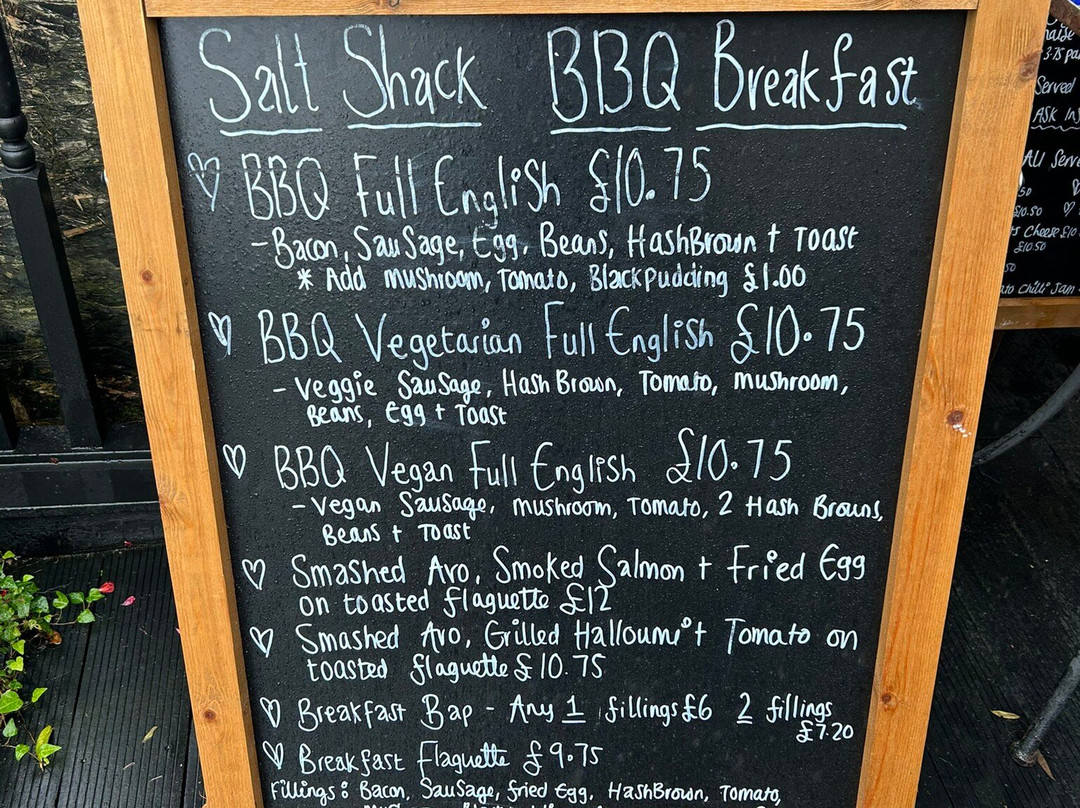 Salt Shack BBQ Breakfast
BBQ Full English £10.75
- Bacon, Sausage, Egg, Beans, HashBrown + Toast
* Add mushroom, Tomato, Black pudding £1.00
BBQ Vegetarian Full English £10.75
- veggie Sausage, Hash Brown, Tomato, mushroom,
Beans, egg + Toast
BBQ Vegan Full English £10.75
- Vegan Sausage, mushroom, Tomato, 2 Hash Browns,
Beans + Toast
Smashed Avo, Smoked Salmon + Fried Egg
on toasted flaguette £12
Smashed Avo, Grilled Halloumi + Tomato on
toasted flaguette £10.75
Breakfast Bap - Any 1 fillings £6 2 fillings
£7.20
Breakfast Flaguette £9.75
Fillings: Bacon, Sausage, fried Egg, HashBrown, Tomato,
3.75
Served
Ask
All
£10.50
Cheese £10
£10.50
Chilli Jam